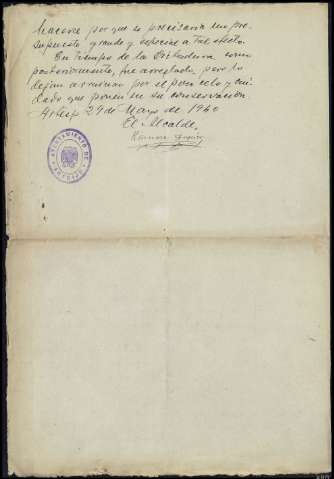 hacerse por que se precisaria un pre-
supuesto grande y especial a tal efecto.
En tiempo de la Dictadura, como
posteriormente, fue arreglado, pero lo
dejan arruinar por el poco celo y cui-
dado que ponen en su conservación
29 de Mayo de 1940
El Alcalde,
Ramon
AYUNTAMIENTO DE